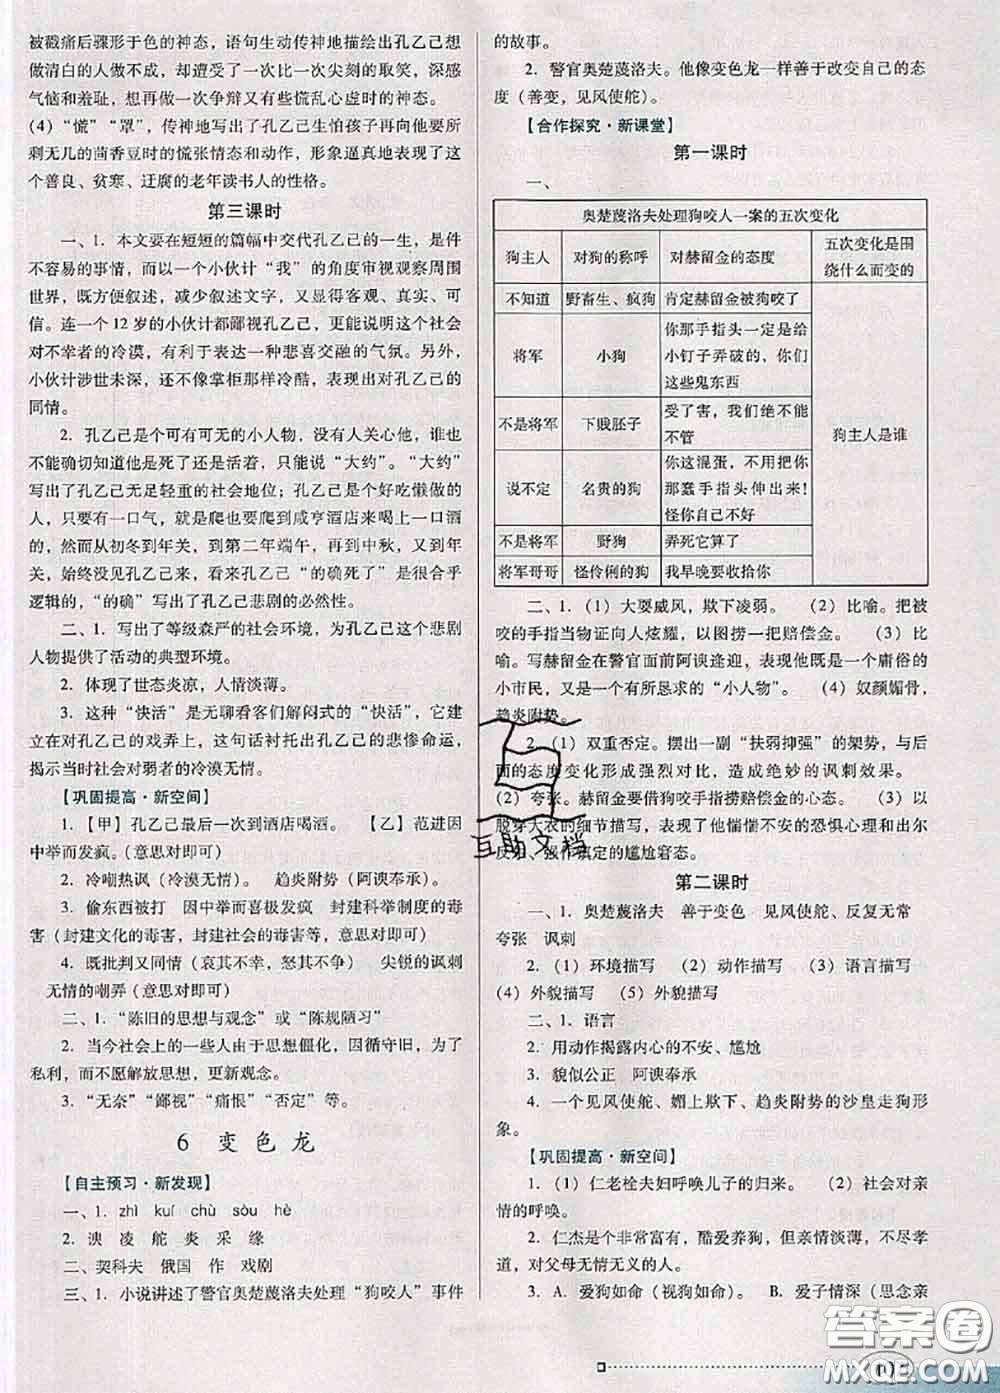 被戳痛后骤形于色的神态，语句生动传神地描绘出孔乙己想
做清白的人做不成，却遭受了一次比一次尖刻的取笑，深感
气恼和羞耻，想再做一次争辩又有些慌乱心虚时的神态。
(4)“慌”“罩”，传神地写出了孔乙己生怕孩子再向他要所
剩无几的茴香豆时的慌张情态和动作，形象逼真地表现了这
个善良、贫寒、迂腐的老年读书人的性格。
第三课时
一、1. 本文要在短短的篇幅中交代孔乙己的一生，是件
不容易的事情，而以一个小伙计“我”的角度审视观察周围
世界，既方便叙述，减少叙述文字，又显得客观、真实、可
信。连一个12岁的小伙计都鄙视孔乙己，更能说明这个社会
对不幸者的冷漠，有利于表达一种悲喜交融的气氛。另外，
小伙计涉世未深，还不像掌柜那样冷酷，表现出对孔乙己的
同情。
2. 孔乙己是个可有可无的小人物，没有人关心他，谁也
不能确切知道他是死了还是活着，只能说“大约”。“大约”
写出了孔乙己无足轻重的社会地位；孔乙己是个好吃懒做的
人，只要有一口气，就是爬也要爬到咸亨酒店来喝上一口酒
的，然而从初冬到年关，到第二年端午，再到中秋，又到年
关，始终没见孔乙己来，看来孔乙己“的确死了”是很合乎
逻辑的，“的确”写出了孔乙己悲剧的必然性。
二、1. 写出了等级森严的社会环境，为孔乙己这个悲剧
人物提供了活动的典型环境。
2. 体现了世态炎凉，人情淡薄。
3. 这种“快活”是无聊看客们解闷式的“快活”，它建
立在对孔乙己的戏弄上，这句话衬托出孔乙己的悲惨命运，
揭示当时社会对弱者的冷漠无情。
【巩固提高·新空间】
1.【甲】孔乙己最后一次到酒店喝酒。 【乙】范进因
中举而发疯。（意思对即可）
2. 冷嘲热讽（冷漠无情）。 趋炎附势（阿谀奉承）。
3. 偷东西被打 因中举而喜极发疯 封建科举制度的毒
害（封建文化的毒害，封建社会的毒害等，意思对即可）
4. 既批判又同情（哀其不幸，怒其不争） 尖锐的讽刺
无情的嘲弄（意思对即可）
二、1.“陈旧的思想与观念”或“陈规陋习”
2. 当今社会上的一些人由于思想僵化，因循守旧，为了
私利，而不愿解放思想，更新观念。
3.“无奈”“鄙视”“痛恨”“否定”等。
6 变色龙
【自主预习·新发现】
一、1. zhì kuī chù sòu hè
2. 溴 凌 舵 炎 采 缘
二、契科夫 俄国 作 戏剧
三、1. 小说讲述了警官奥楚蔑洛夫处理“狗咬人”事件
的故事。
2. 警官奥楚蔑洛夫。他像变色龙一样善于改变自己的态
度（善变，见风使舵）。
【合作探究·新课堂】
第一课时
一、
奥楚蔑洛夫处理狗咬人一案的五次变化
狗主人 对狗的称呼 对赫留金的态度 五次变化是围绕什么而变的
不知道 野畜生、疯狗 肯定赫留金被狗咬了
将军 小狗 你那手指头一定是给小钉子弄破的，你们这些鬼东西
不是将军 下贱胚子 受了害，我们绝不能不管
狗主人是谁
说不定 名贵的狗 你这混蛋，不用把你那蠢手指头伸出来！怪你自己不好
不是将军 野狗 弄死它算了
将军哥哥 怪伶俐的狗 我早晚要收拾你
二、1.（1）大耍威风，欺下凌弱。 （2）比喻。把被
咬的手指当物证向人炫耀，以图捞一把赔偿金。 （3）比
喻。写赫留金在警官面前阿谀逢迎，表现他既是一个庸俗的
小市民，又是一个有所恳求的“小人物”。 （4）奴颜媚骨，
趋炎附势。
2.（1）双重否定。摆出一副“扶弱抑强”的架势，与后
面的态度变化形成强烈对比，造成绝妙的讽刺效果。
（2）夸张。赫留金要借狗咬手指捞赔偿金的心态。 （3）以
脱穿大衣的细节描写，表现了他惴惴不安的恐惧心理和出尔
反尔、强作镇定的尴尬窘态。
第二课时
一、1. 奥楚蔑洛夫 善于变色 见风使舵、反复无常
夸张 讽刺
2.（1）环境描写 （2）动作描写 （3）语言描写
（4）外貌描写 （5）外貌描写
二、1. 语言
2. 用动作揭露内心的不安、尴尬
3. 貌似公正 阿谀奉承
4. 一个见风使舵、媚上欺下、趋炎附势的沙皇走狗形
象。
【巩固提高·新空间】
1.（1）仁老栓夫妇呼唤儿子的归来。 （2）社会对亲
情的呼唤。
2. 仁杰是个非常富有，酷爱养狗，但亲情淡薄，不尽孝
道，对父母无情无义的人。
3. A. 爱狗如命（视狗如命）。 B. 爱子情深（思念亲
互助文档
答案圈
MXQE.COM